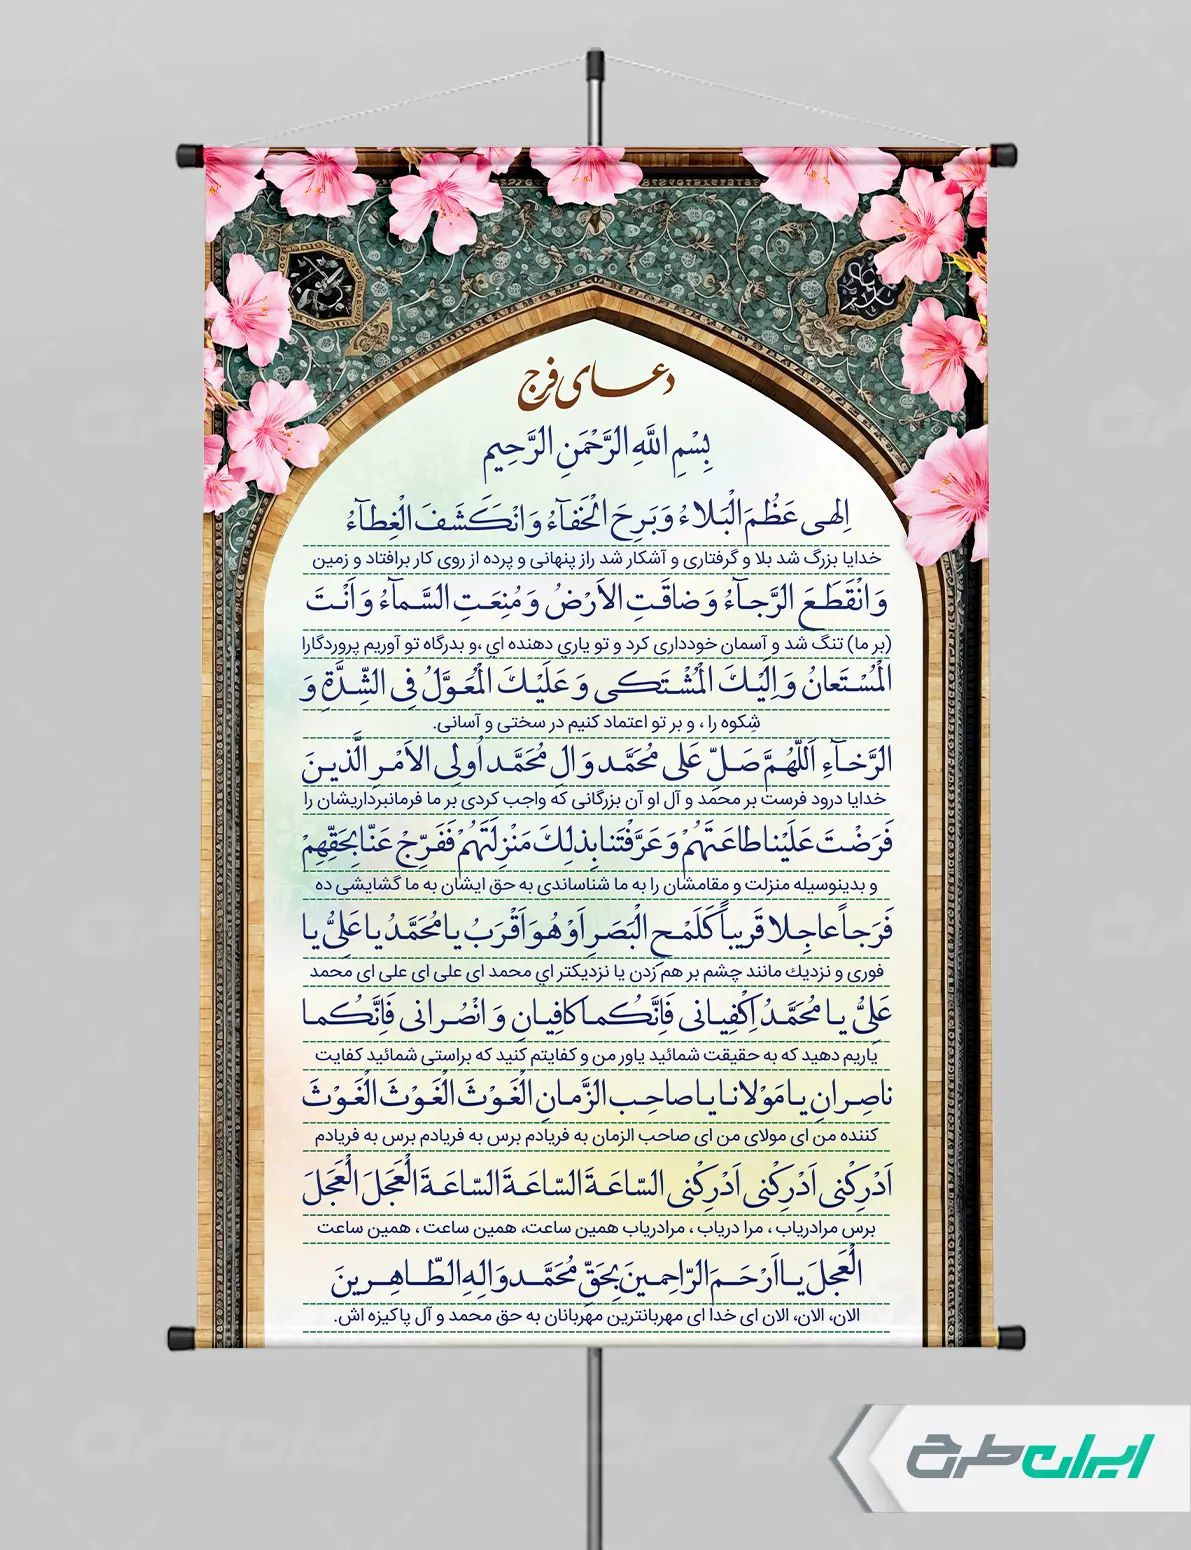 دعای فرج
بِسْمِ اللَّهِ الرَّحْمَنِ الرَّحِیمِ
اِلهی عَظُمَ الْبَلاءُ وَ بَرِحَ الْخَفآءُ وَ انْکَشَفَ الْغِطآءُ
خدایا بزرگ شد بلا و گرفتاری و آشکار شد راز پنهانی و پرده از روی کار برافتاد و زمین
وَ انْقَطَعَ الرَّجآءُ وَ ضاقَتِ الاَرْضُ وَ مُنِعَتِ السَّمآءُ وَ اَنْتَ
(بر ما) تنگ شد و آسمان خودداری کرد و تو یاري دهنده اي ،و بدرگاه تو آوریم پروردگارا
الْمُسْتَعانُ وَ اِلَیْکَ الْمُشْتَکی وَ عَلَیْکَ الْمُعَوَّلُ فِی الشِّدَّةِ وَ
شِکوه را ، و بر تو اعتماد کنیم در سختی و آسانی.
الرَّخآءِ اَللّهُمَّ صَلِّ عَلی مُحَمَّد وَ الِ مُحَمَّد اُولِی الاَمْرِ الَّذینَ
خدایا درود فرست بر محمد و آل او آن بزرگانی که واجب کردی بر ما فرمانبرداریشان را
فَرَضْتَ عَلَیْنا طاعَتَهُمْ وَ عَرَّفْتَنا بِذلِکَ مَنْزِلَتَهُمْ فَفَرِّجْ عَنّا بِحَقِّهِمْ
و بدینوسیله منزلت و مقامشان را به ما شناساندی به حق ایشان به ما گشایشی ده
فَرَجاً عاجِلا قَریباً کَلَمْحِ الْبَصَرِ اَوْ هُوَ اَقْرَبُ یا مُحَمَّدُ یا عَلِیُّ یا
فوری و نزدیك مانند چشم بر هم زدن یا نزدیکتر اي محمد ای علی ای علی ای محمد
عَلِیُّ یا مُحَمَّدُ اِکْفِیانی فَاِنَّکُما کافِیانِ وَ انْصُرانی فَاِنَّکُما
یاریم دهید که به حقیقت شمائید یاور من و کفایتم کنید که براستی شمائید کفایت
ناصِرانِ یا مَوْلانا یا صاحِبَ الزَّمانِ الْغَوْثَ الْغَوْثَ الْغَوْثَ الْغَوْثَ
کننده من ای مولای من ای صاحب الزمان به فریادم برس به فریادم برس به فریادم
اَدْرِکْنی اَدْرِکْنی اَدْرِکْنی السّاعَةَ السّاعَةَ السّاعَةَ الْعَجَلَ الْعَجَلَ
برس مرادریاب ، مرا دریاب ، مرادریاب همین ساعت، همین ساعت ، همین ساعت
الْعَجَلَ یا اَرْحَمَ الرّاحِمینَ بِحَقِّ مُحَمَّد وَ الِهِ الطّاهِرینَ
الان، الان، الان ای خدا ای مهربانترین مهربانان به حق محمد و آل پاکیزه اش.
ایران طرح